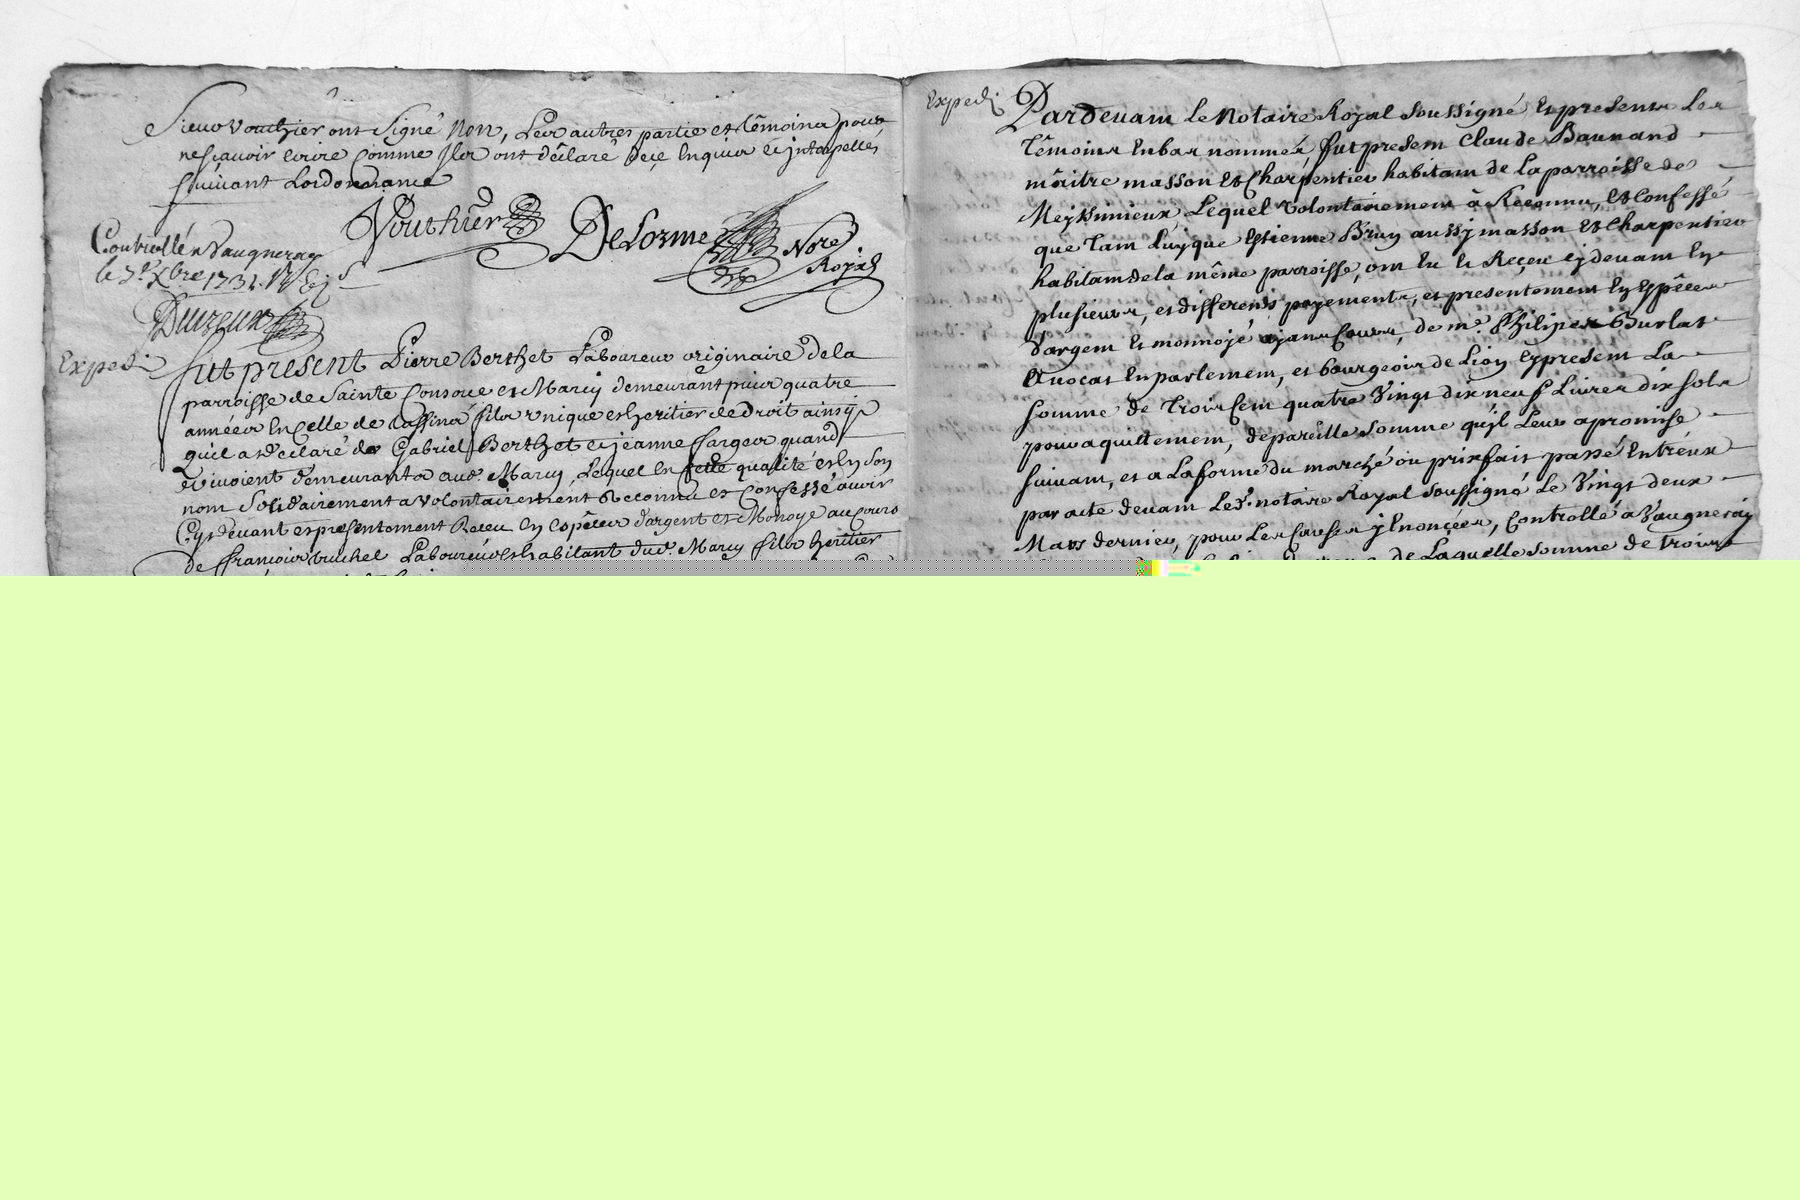 Sieur Vouthier ont signé Non, Les autres partie et têmoins pour
ne sçavoir ecrire comme Ils ont déclaré de ce Enquis et jnterpellés
suivant Lordonnance
Vouthier Delorme No.re Royal
Controllé a Vaugneray
le 7.e Xbre 1731.
Expedié
fut present Pierre Berthet Laboureur originaire de la
parroisse de Sainte Consorce et Marcy demeurant puis quatre
années En celle de Lassina fils unique et heritier de droit ainsÿ
qu'il a declaré de Gabriel Berthet et jeanne fargeor quand
vivoient demeurants aud. Marcy, Lequel En cette qualité et En son
nom solidairement a volontairement Reconnu et Confessé avoir
Cy devant et presentement Receu En espéces d'argent et Monoye au Cours
de françois Laboureur et habitant dud. Marcy fils heritier
Expedié
Pardevant Le Notaire Royal Soussigné Et presents Les
Témoins En bas nommés, fut present Claude Baunand
maitre masson Et Charpentier habitant de La parroisse de
Meyssimieux Lequel volontairement à Reconnu, et Confessé
que Tant Luy que Estienne Brun aussy masson Et Charpentier
habitant de la même parroisse, ont Eu et Reçeu cy devant En
plusieurs, et differents payements, et presentement En Espêces
d'argent Et monnoyé ayant Cours, de m.e Philipes Burlat
Avocat En parlement, et bourgeois de Lion cy present La
somme de Trois Cent quatre Vingt dix neuf Livres dix sols
pour aquittement, de pareille somme qu'jl Leur a promise
suivant, et a La forme du marché ou prixfait passé Entréux
par acte devant Led. notaire Royal soussigné Le Vingt deux
Mars dernier, pour Les Causes y Enonçées, Controllé a Vaugneray
de Laquelle somme de trois